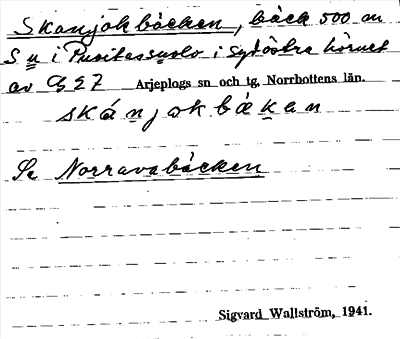 Skanjokbäcken, bäck 500 m
S u i Puoitessuolo i sydöstra hörnet
av G 27 Arjeplogs sn och tg, Norrbottens län.
skánjokbækan
Se Norravabäcken
Sigvard Wallström, 1941.